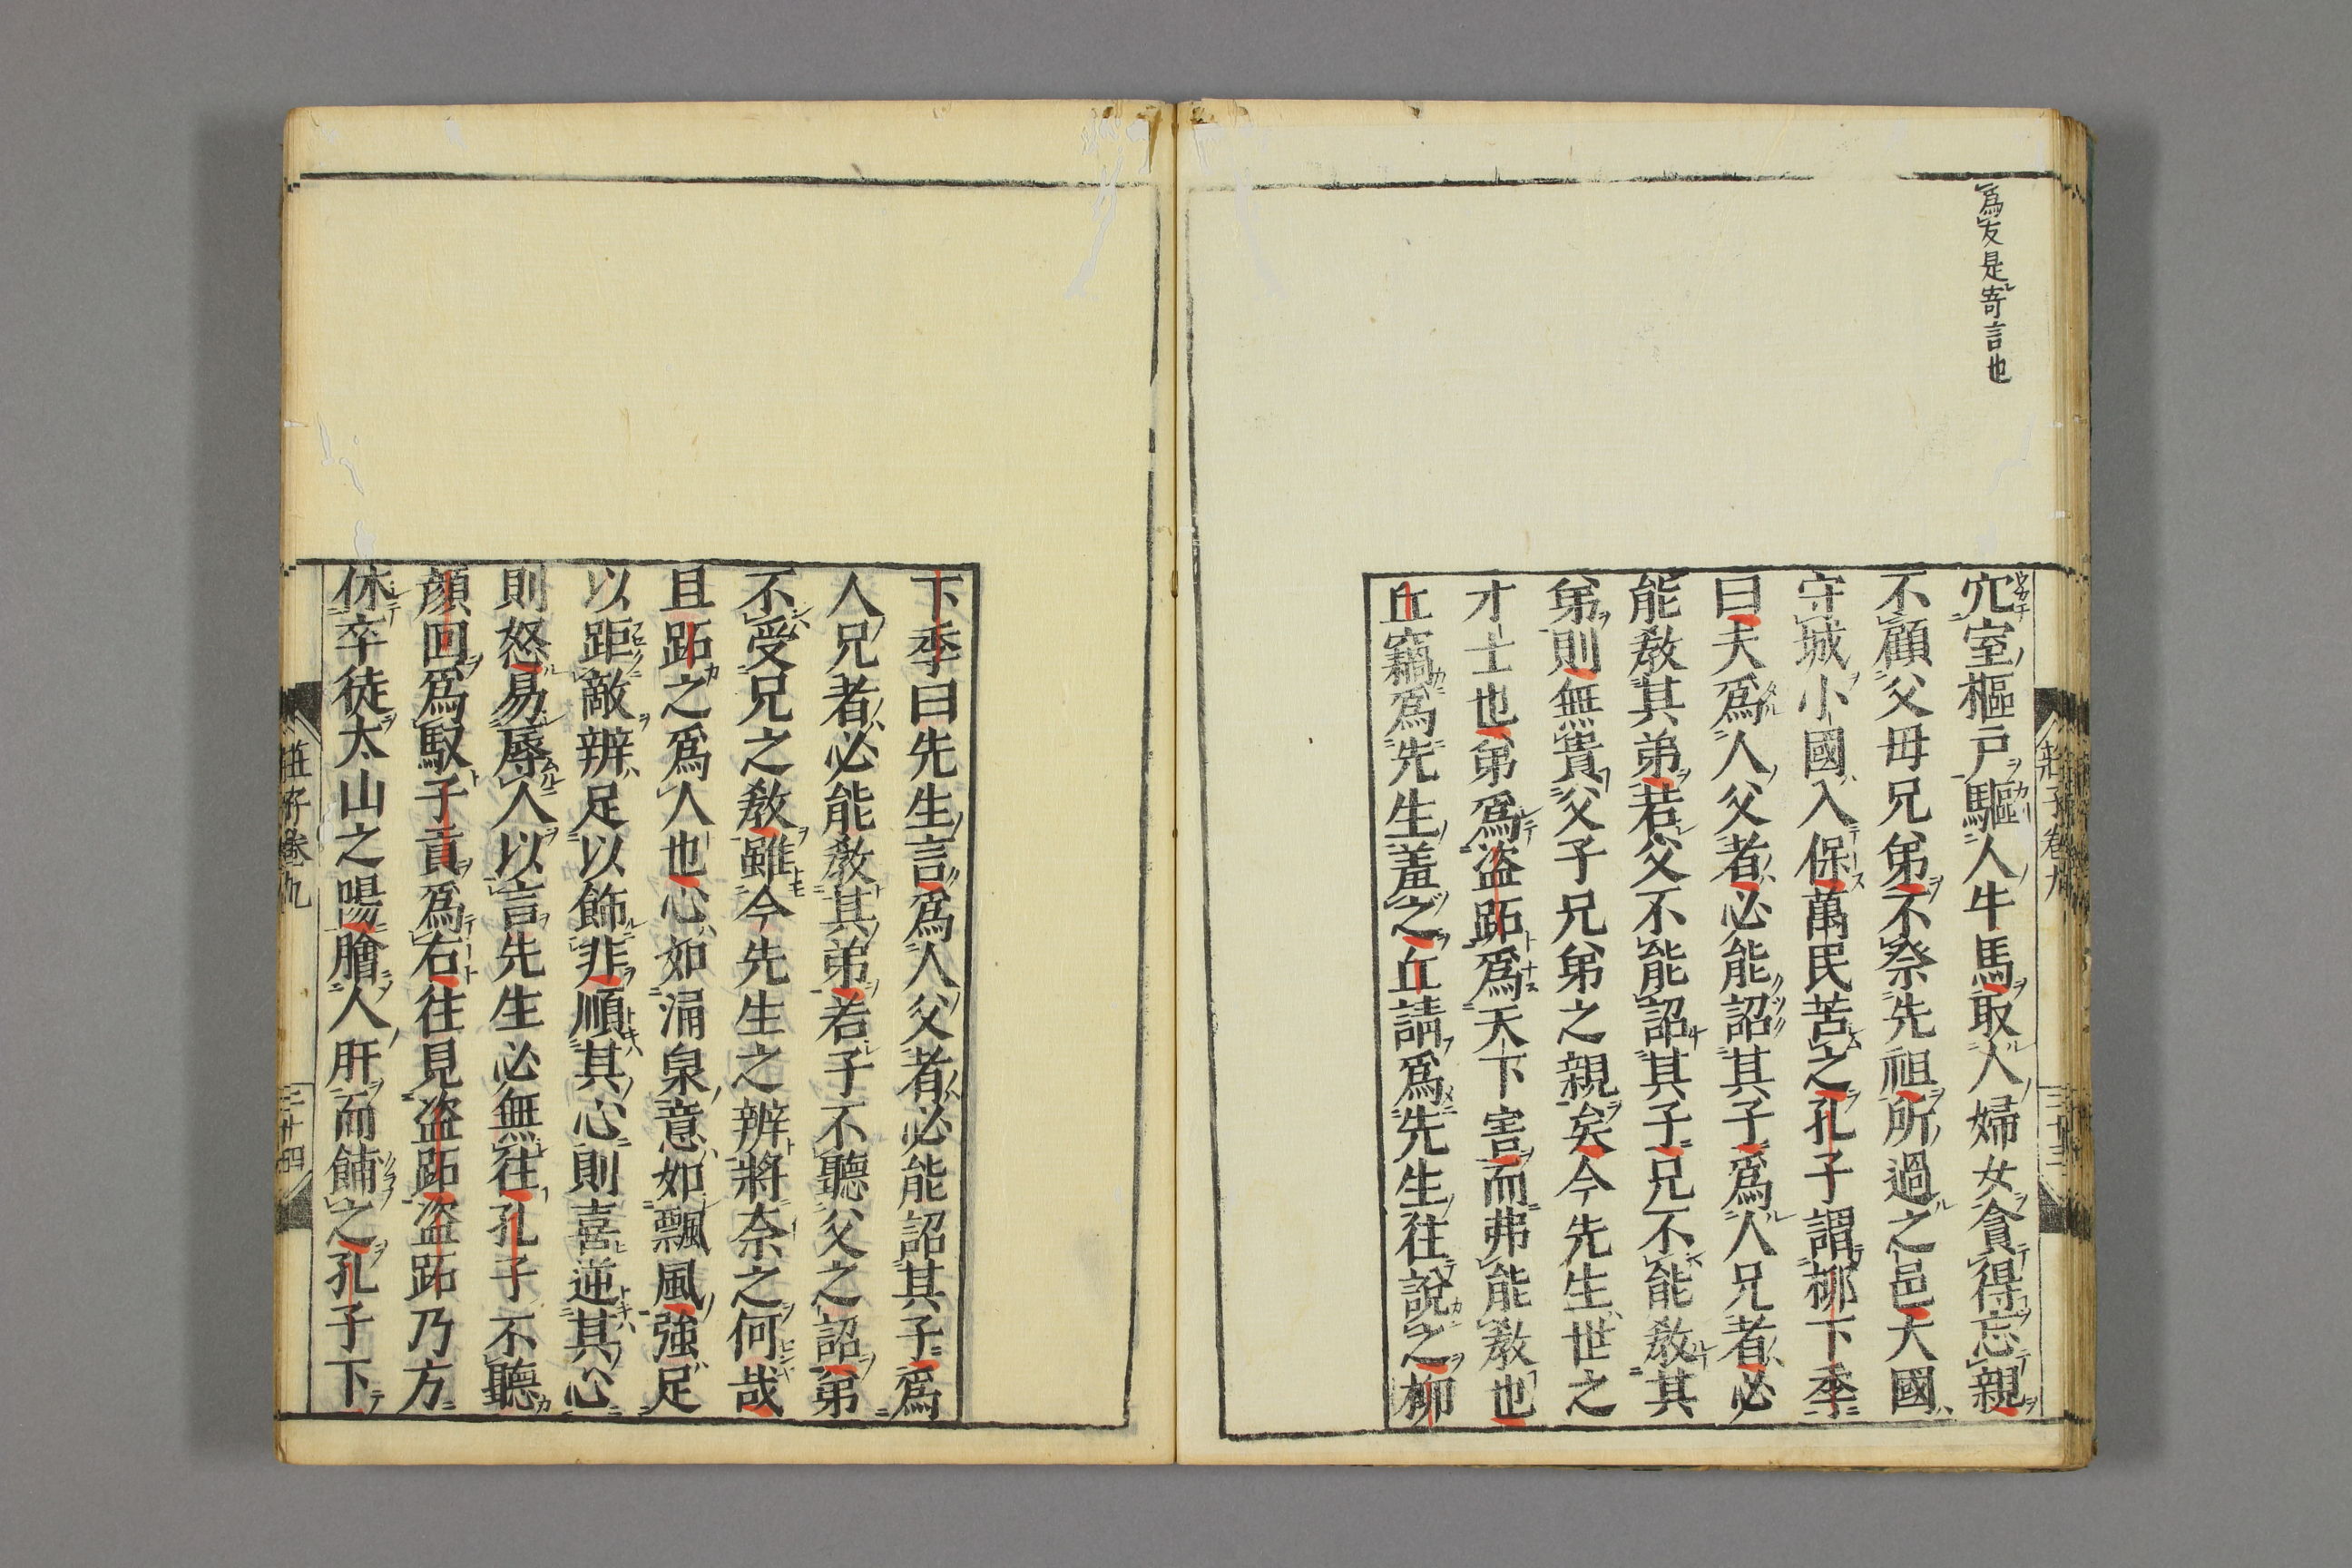 爲友是寄言也
穴室樞戸驅人牛馬取人婦女貪得忘親
不顧父母兄弟不祭先祖所過之邑大國
守城小國入保萬民苦之孔子謂柳下季
曰夫爲人父者必能詔其子爲人兄者必
能敎其弟若父不能詔其子兄不能敎其
弟則無貴父子兄弟之親矣今先生世之
才士也弟爲盗跖爲天下害而弗能敎也
丘竊爲先生羞之丘請爲先生往說之柳
下季曰先生言爲人父者必能詔其子爲
人兄者必能敎其弟若子不聽父之詔弟
不受兄之敎雖今先生之辨將奈之何哉
且跖之爲人也心如涌泉意如飄風強足
以距敵辨足以飾非順其心則喜逆其心
則怒易辱人以言先生必無往孔子不聽
顏回爲馭子貢爲右往見盗跖盗跖乃方
休卒徒太山之陽膾人肝而餔之孔子下
莊子卷九
二十四